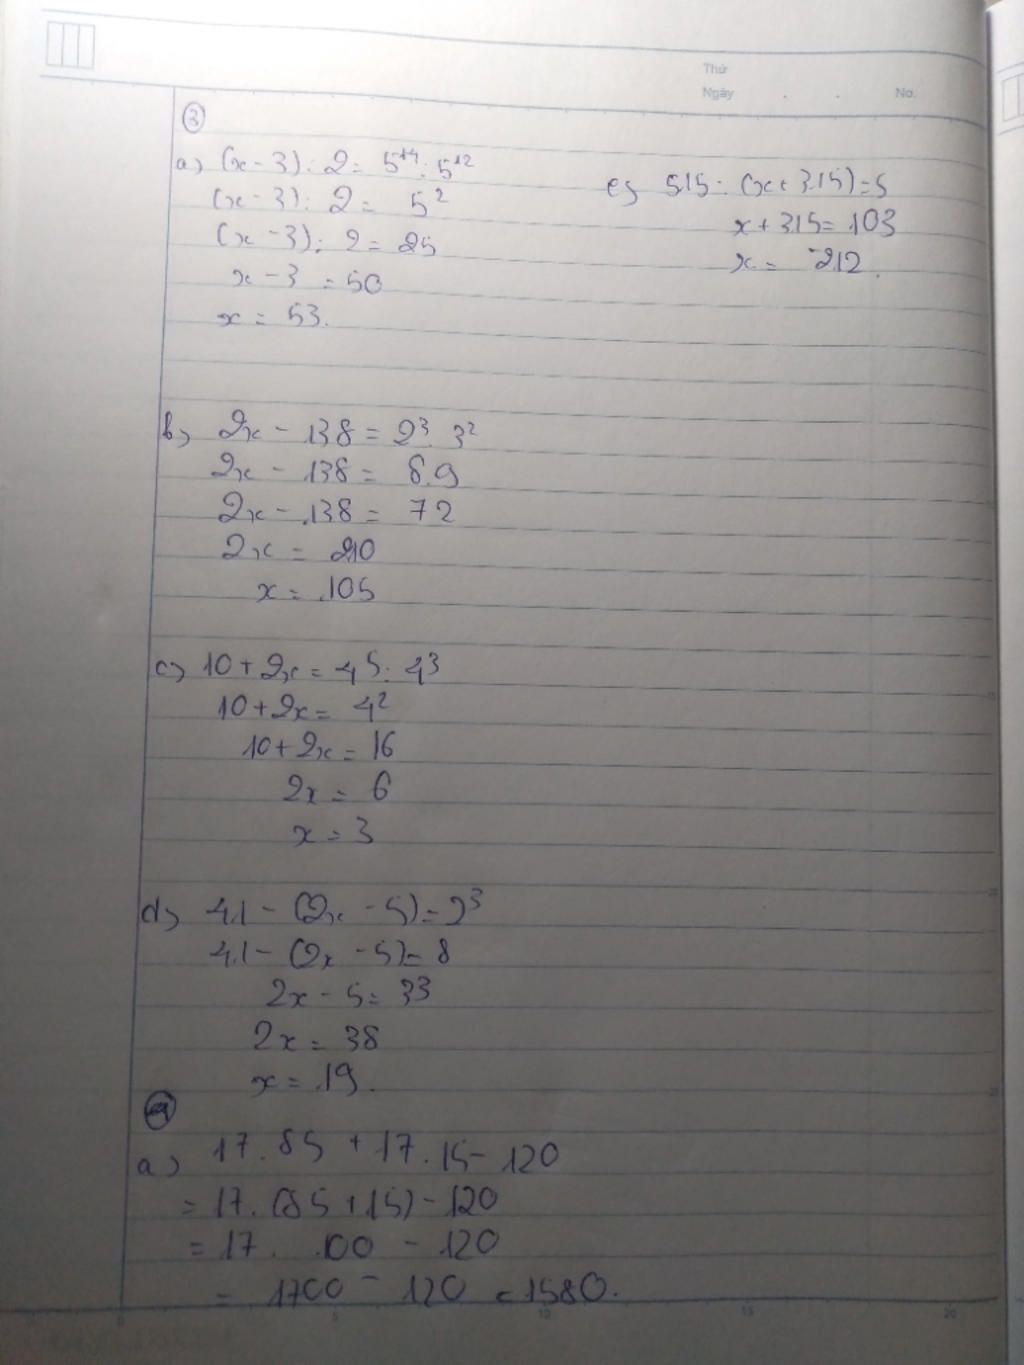 Thứ
Ngày . . No.
③
a) (x - 3) : 2 = 5¹⁴ : 5¹²
(x - 3) : 2 = 5²
(x - 3) : 2 = 25
x - 3 = 50
x = 53.
e) 515 : (x + 315) = 5
x + 315 = 103
x = -212.
b) 2x - 138 = 2³. 3²
2x - 138 = 8.9
2x - 138 = 72
2x = 210
x = 105
c) 10 + 2x = 4⁵ : 4³
10 + 2x = 4²
10 + 2x = 16
2x = 6
x = 3
d) 41 - (2x - 5) = 2³
41 - (2x - 5) = 8
2x - 5 = 33
2x = 38
x = 19.
a) 17. 85 + 17. 15 - 120
= 17. (85 + 15) - 120
= 17. 100 - 120
= 1700 - 120 = 1580.
0 5 10 15 20